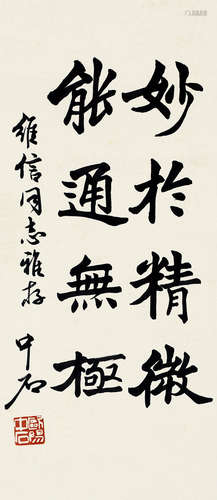 妙於精微
能通無極
維信同志雅存
中石
歐陽中石